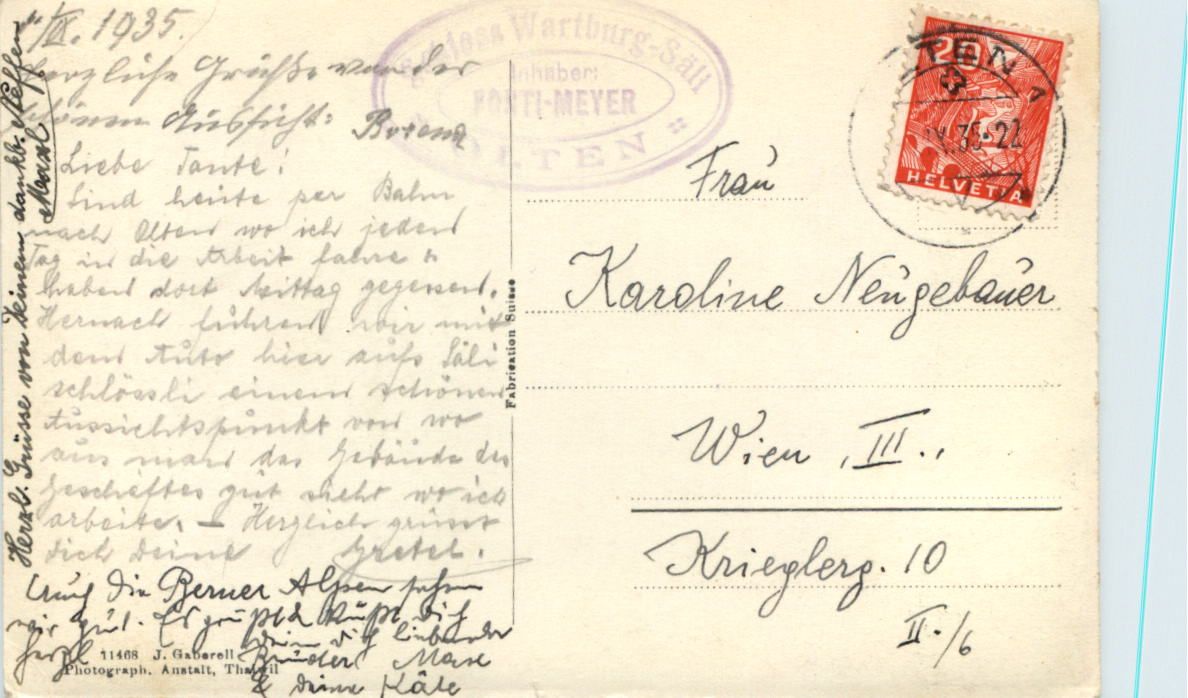 /IX. 1935.
Herzliche Grüße von der
schönen Aussicht:
Liebe Tante!
Sind heute per Bahn
nach Olten wo ich jeden
Tag in die Arbeit fahre u
haben dort Mittag gegessen.
Hernach führen wir mit
dem Auto hier aufs Säli
schlössli einem schönen
Aussichtspunkt von wo
aus man das Gebäude des
Geschäftes gut sieht wo ich
arbeite. – Herzlich grüsst
dich Deine Gretel.
Auch die Berner Alpen sahen
wir gut. Es grüßt & küßt dich
herzl dein dich liebender
Bruder Max
& deine Käte
Herzl. Grüsse von Deinem dankb. Neffen
Schloss Wartburg-Säli
Inhaber:
PONTI-MEYER
OLTEN
20
HELVETIA
TEN
IX.35-22
Frau
Karoline Neugebauer
Wien, III.,
Krieglerg. 10
II./6
Fabrication Suisse
11468 J. Gaberell
Photograph. Anstalt, Thalwil